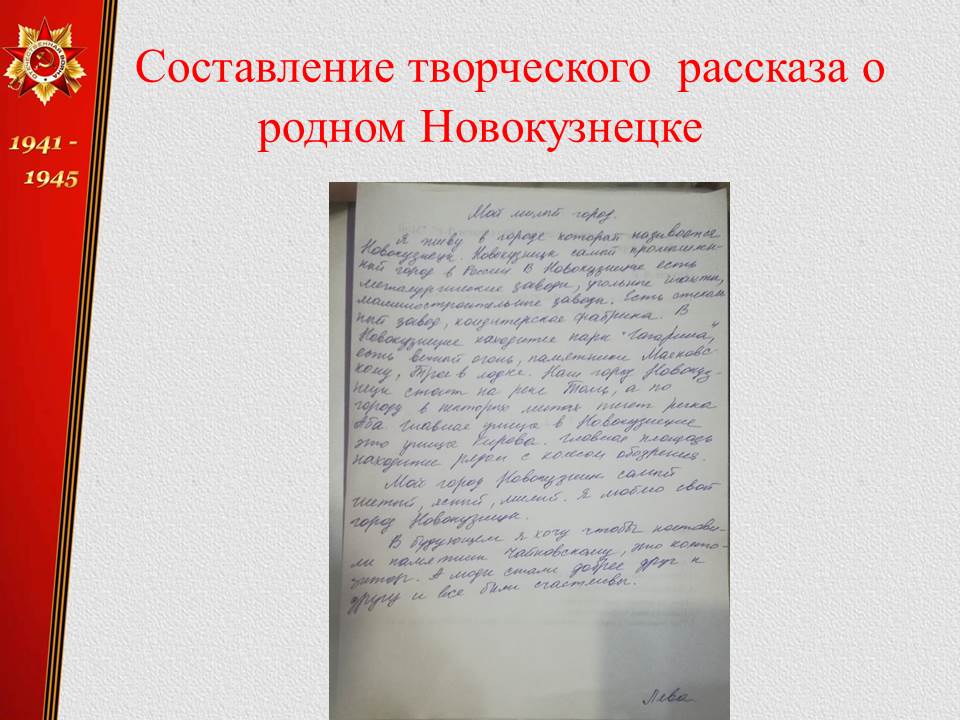 ОТЕЧЕСТВЕННАЯ ВОЙНА
1941 -
1945
Составление творческого рассказа о
родном Новокузнецке
Мой милый город.
Я живу в городе который называется
Новокузнецк. Новокузнецк самый промышлен-
ный город в России В Новокузнецке есть
металургические заводы, угольные шахты,
машиностроительные заводы. Есть стеколь
ный завод, кондитерская фабрика. В
Новокузнецке находится парк "Гагарина",
есть вечный огонь, памятники Маяковс-
кому, Трое в лодке. Наш город Новокуз-
нецк стоит на реке Томь, а по
городу в некторых местах течет речка
Аба Главная улица в Новокузнецке
это улица Кирова. Главная площадь
находится рядом с колесом обозрения.
Мой город Новокузнецк самый
чистый, ясный, милый. Я люблю свой
город Новокузнецк.
В будующем я хочу чтобы постави-
ли памятник Чайковскому, это компо-
зитор. А люди стали добрее друг к
другу и все были счастливы.
Лева